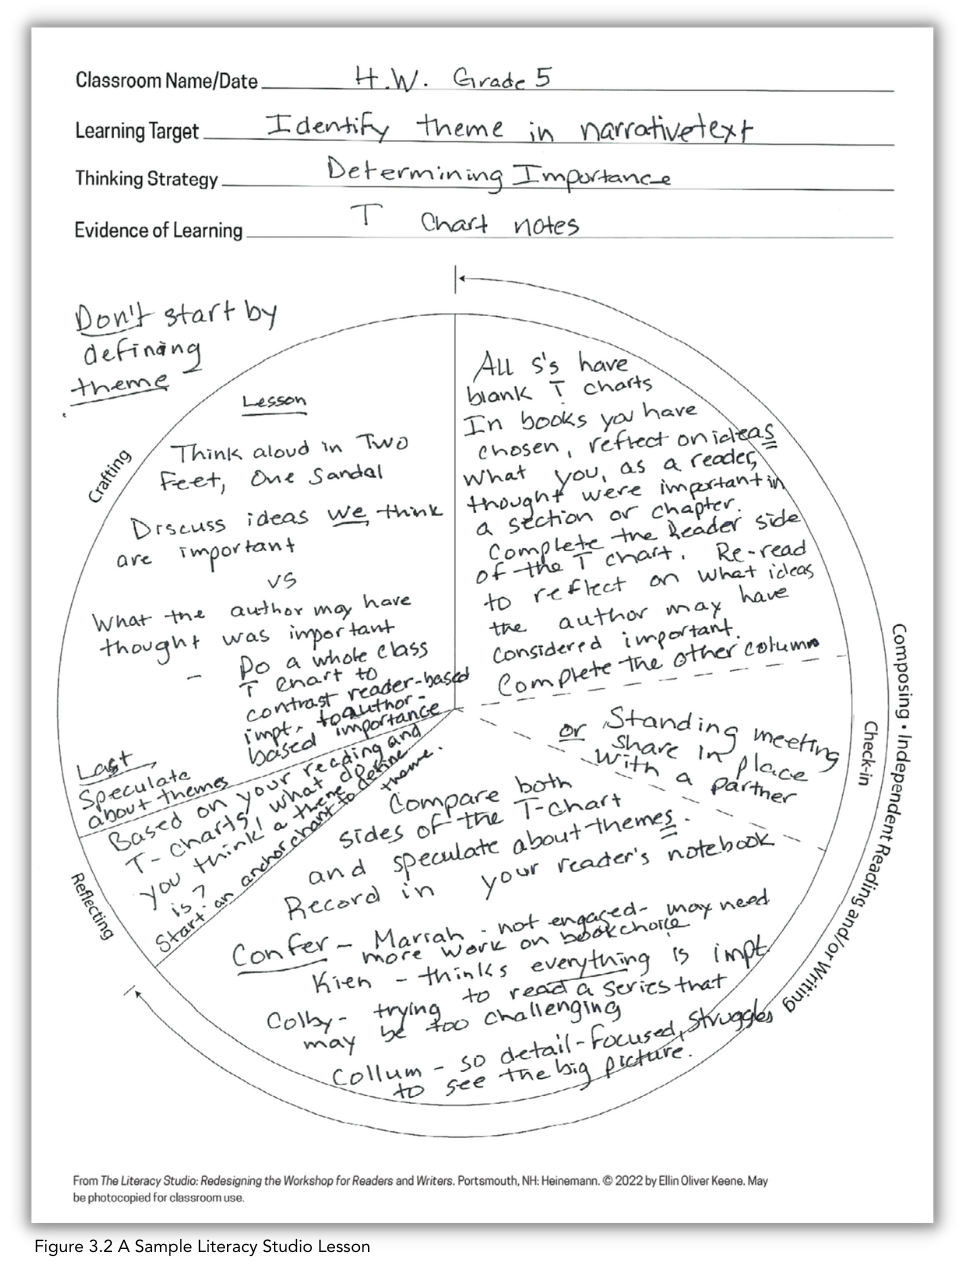 Classroom Name/Date H.W. Grade 5
Learning Target Identify theme in narrative text
Thinking Strategy Determining Importance
Evidence of Learning T Chart notes
Don't start by
defining
theme
Crafting
Lesson
Think aloud in Two
Feet, One Sandal
Discuss ideas we think
are important
vs
What the author may have
thought was important
- Do a whole class
T chart to
contrast reader-based
impt. to author-
based importance
Last,
Speculate
about themes
All S's have
blank T charts
In books you have
chosen, reflect on ideas
what you, as a reader,
thought were important in
a section or chapter.
Complete the Reader side
of the T chart. Re-read
to reflect on what ideas
the author may have
considered important.
Complete the other column
Composing • Independent Reading and/or Writing
Check-in
or Standing meeting
share in place
with a partner
Compare both
sides of the T-Chart
and speculate about themes.
Record in your reader's notebook
Confer - Mariah - not engaged - may need
more work on book choice
Kien - thinks everything is impt.
Colby - trying to read a series that
may be too challenging
Collum - so detail-focused, struggles
to see the big picture.
Reflecting
Based on your reading and
T-charts, what do
you think a theme
is?
Start an anchor chart to define
theme.
From The Literacy Studio: Redesigning the Workshop for Readers and Writers. Portsmouth, NH: Heinemann. © 2022 by Ellin Oliver Keene. May
be photocopied for classroom use.
Figure 3.2 A Sample Literacy Studio Lesson